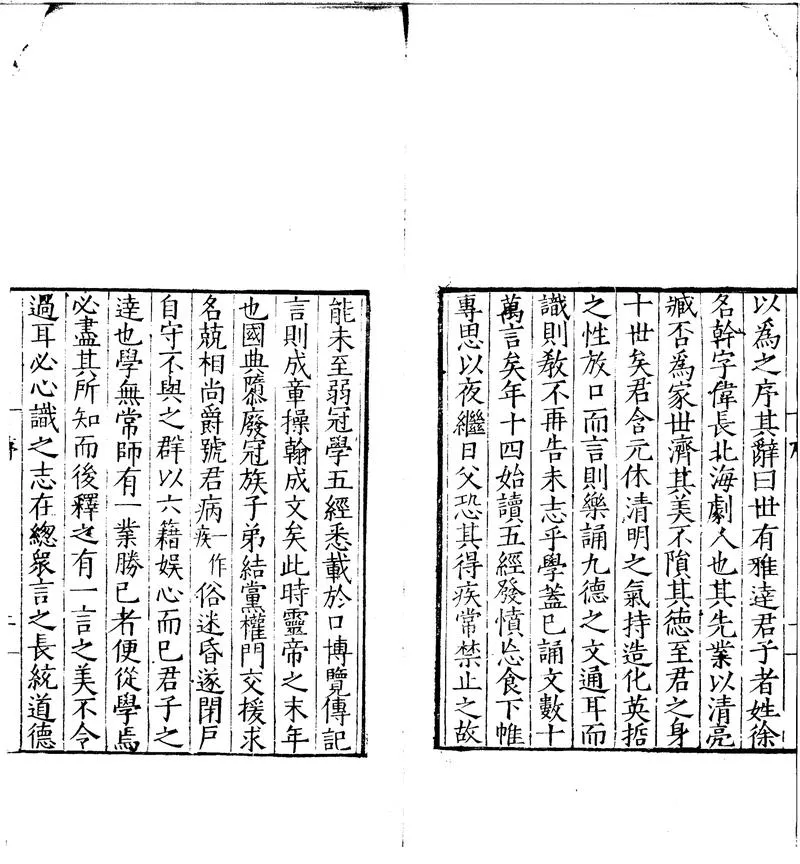 以為之序其辭曰世有雅達君子者姓徐
名幹字偉長北海劇人也其先業以清亮
臧否為家世濟其美不隕其德至君之身
十世矣君含元休清明之氣持造化英哲
之性放口而言則樂誦九德之文通耳而
識則敎不再告未志乎學蓋已誦文數十
萬言矣年十四始讀五經發憤忘食下帷
專思以夜繼日父恐其得疾常禁止之故
能未至弱冠學五經悉載於口博覽傳記
言則成章操翰成文矣此時靈帝之末年
也國典隳廢冠族子弟結黨權門交援求
名競相尚爵號君病一作疾俗迷昏遂閉戶
自守不與之群以六籍娛心而已君子之
達也學無常師有一業勝己者便從學焉
必盡其所知而後釋之有一言之美不令
過耳必心識之志在總衆言之長統道德